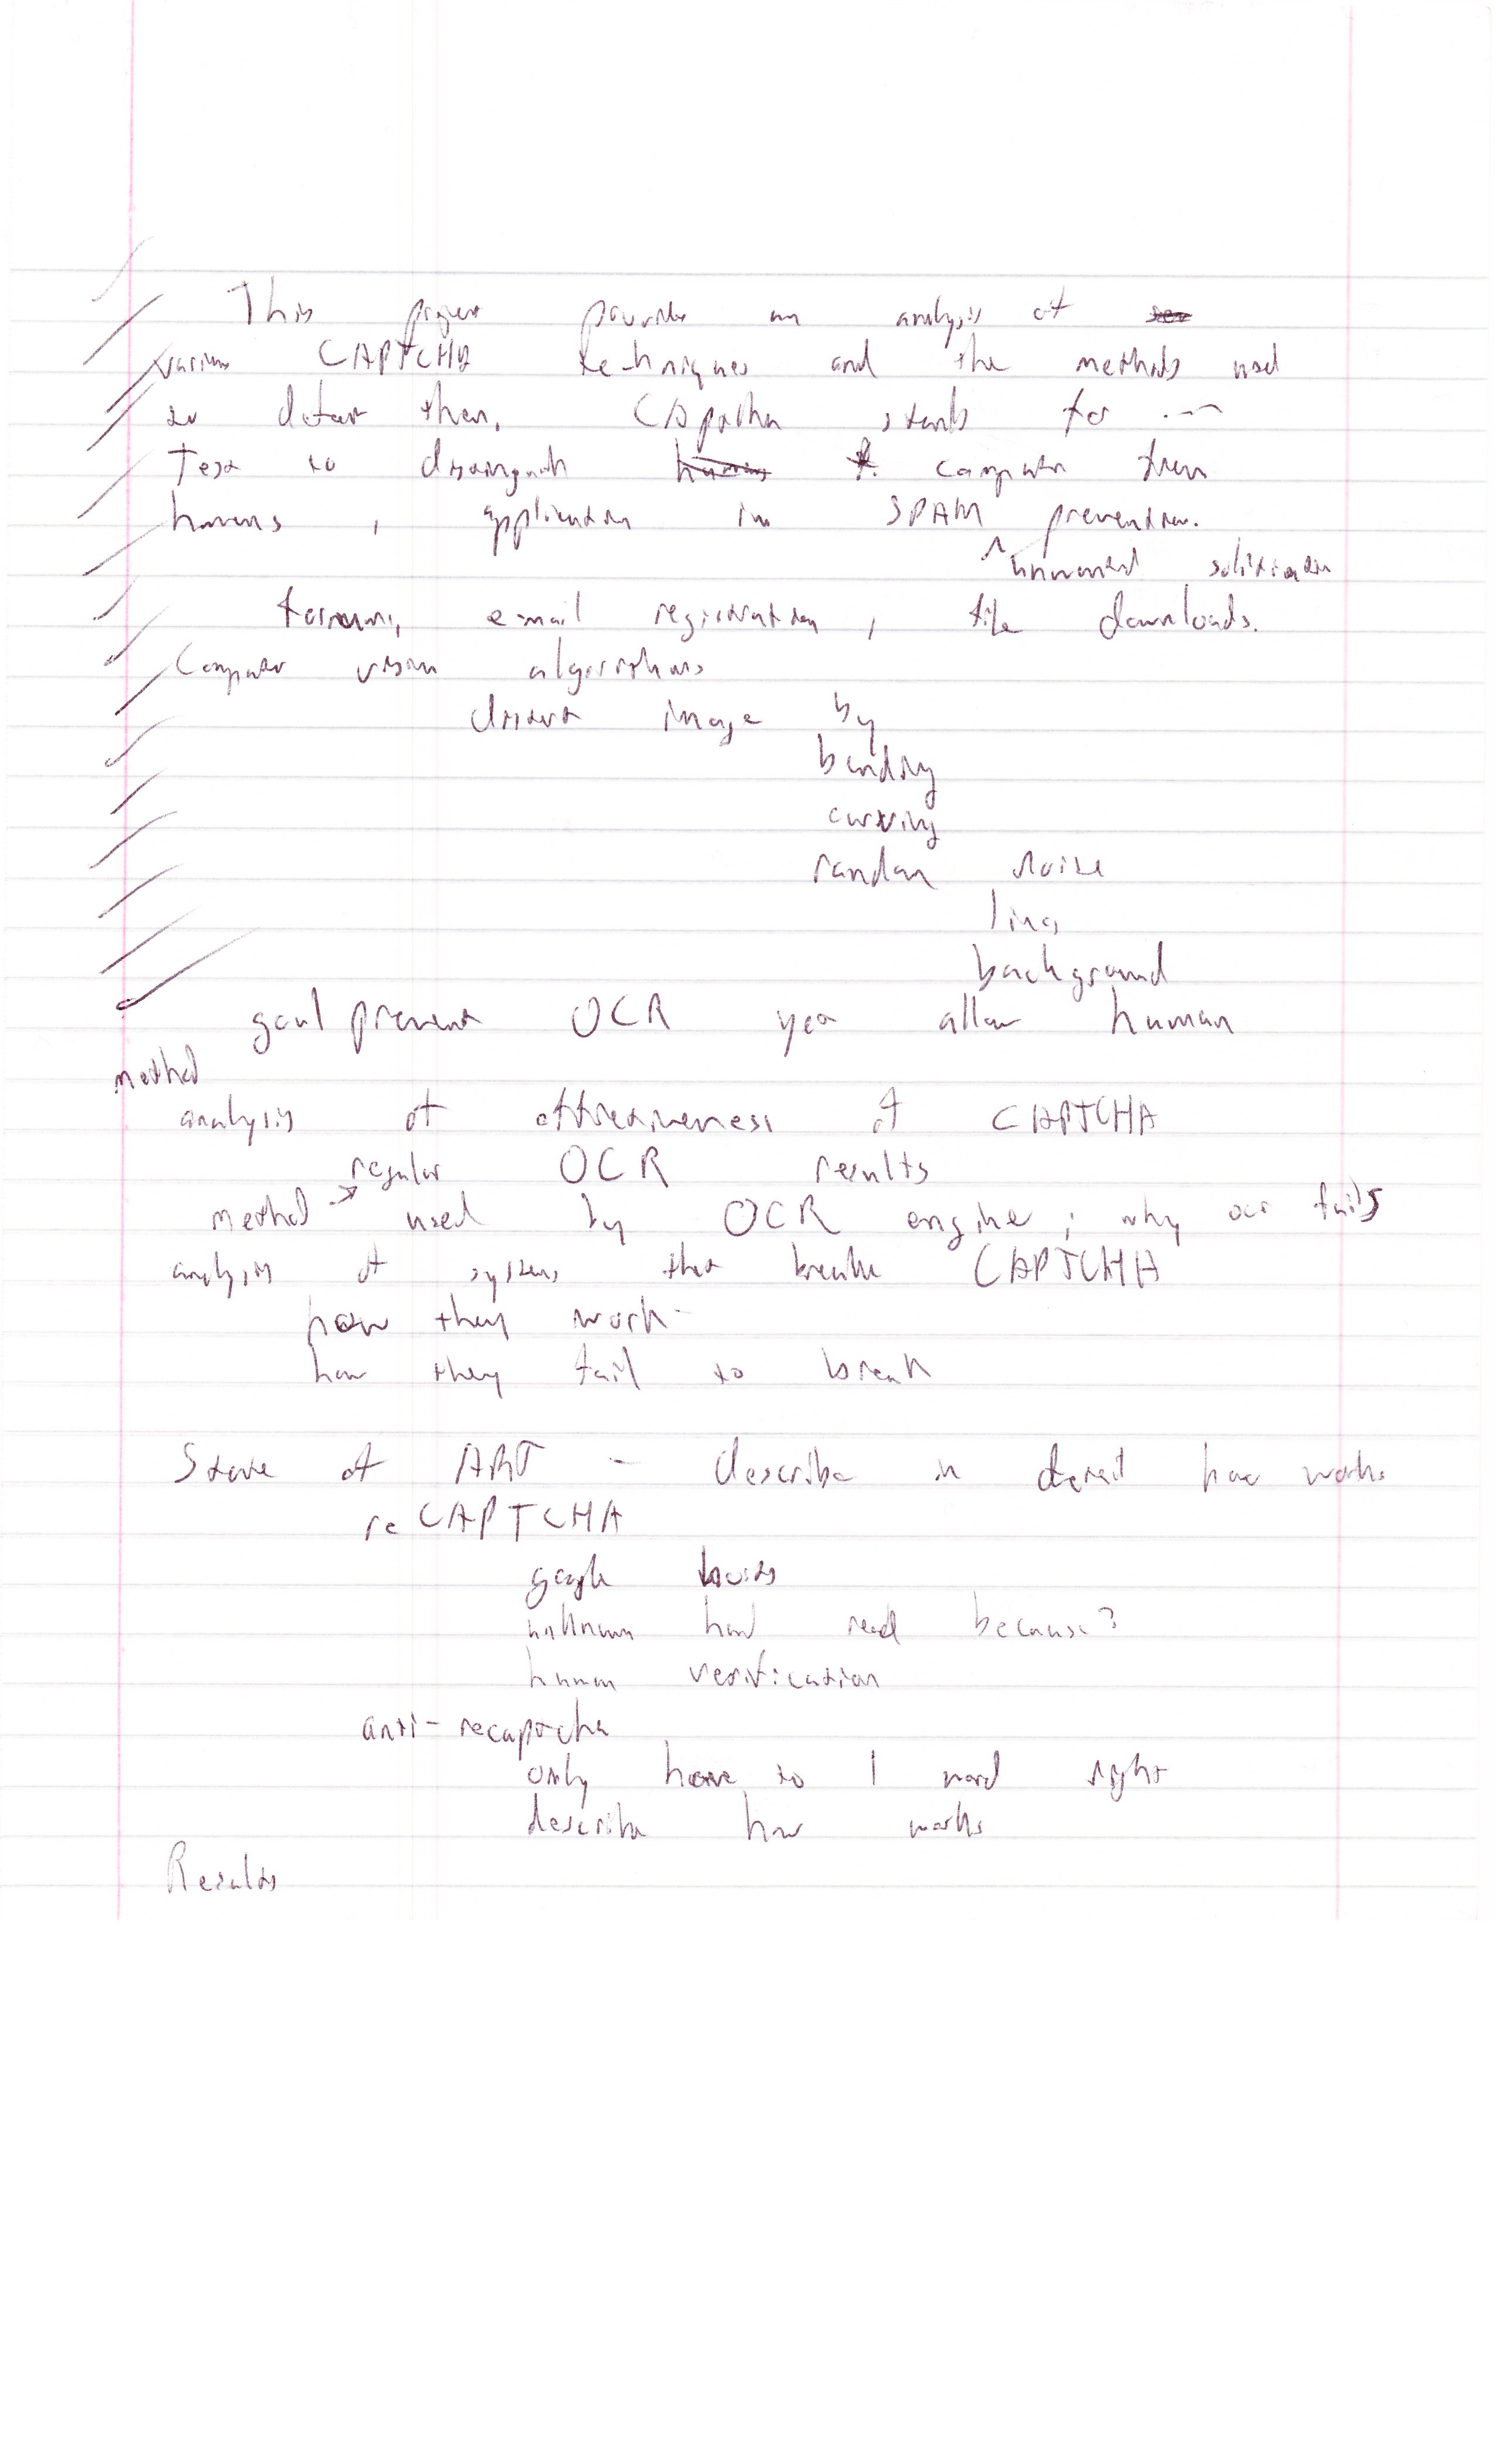 This project provides an analysis of
various CAPTCHA techniques and the methods used
to defeat them, CApptcha stands for ---
Test to distinguish humans f. computer from
humans, application in SPAM prevention.
^ unwanted solicitation
forums, email registration, file downloads.
Computer vision algorithms
distort image by
bending
curving
random noise
lines
background
goal prevent OCR yet allow human
method
analysis of effectiveness of CAPTCHA
regular OCR results
method → used by OCR engine ; why ocr fails
analysis of systems that break CAPTCHA
how they work -
how they fail to break
State of ART - describe in detail how works
reCAPTCHA
google books
unknown how read because?
human verification
anti-recaptcha
only have to 1 word right
describe how works
Results